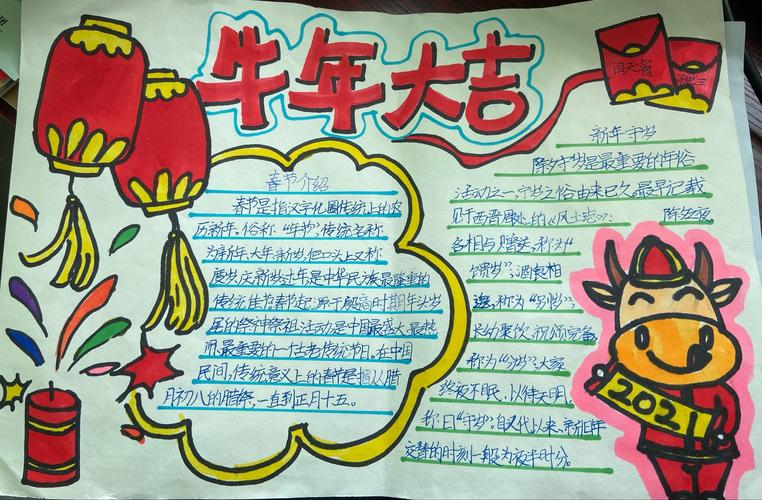 牛年大吉
春节介绍
春节是指汉字化圈传统上的农
历新年,俗称,“年节”,传统名称
为新年、大年、新岁,但口头上又称
度岁、庆新岁、过年,是中华民族最隆重的
传统佳节春节起源于殷商时期年头岁
尾的祭神祭祖活动,是中国最盛大、最热
闹、最重要的一个古老传统节日。在中国
民间,传统意义上的春节是指从腊
月初八的腊祭,一直到正月十五。
新年守岁
除夕守岁是最重要的年俗
活动之一,守岁之俗由来已久。最早记载
见于西晋周处的《风土志》:除夕之夜
各相与赠送,称为“
馈岁”;酒食相
邀,称为“别岁”;
长幼聚饮,祝颂完备,
称为“分岁”;大家
终夜不眠,以待天明,
称曰“守岁”。自汉代以来,新旧年
交替的时刻一般为夜半时分。
2021